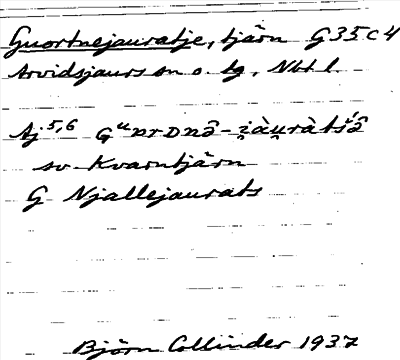 Guortnejauratje, tjärn G35c4
Arvidsjaurs sn o. tg, Nbt l.
Aj 5,6
sv Kvarntjärn
G Njallejaurats
Björn Collinder 1937